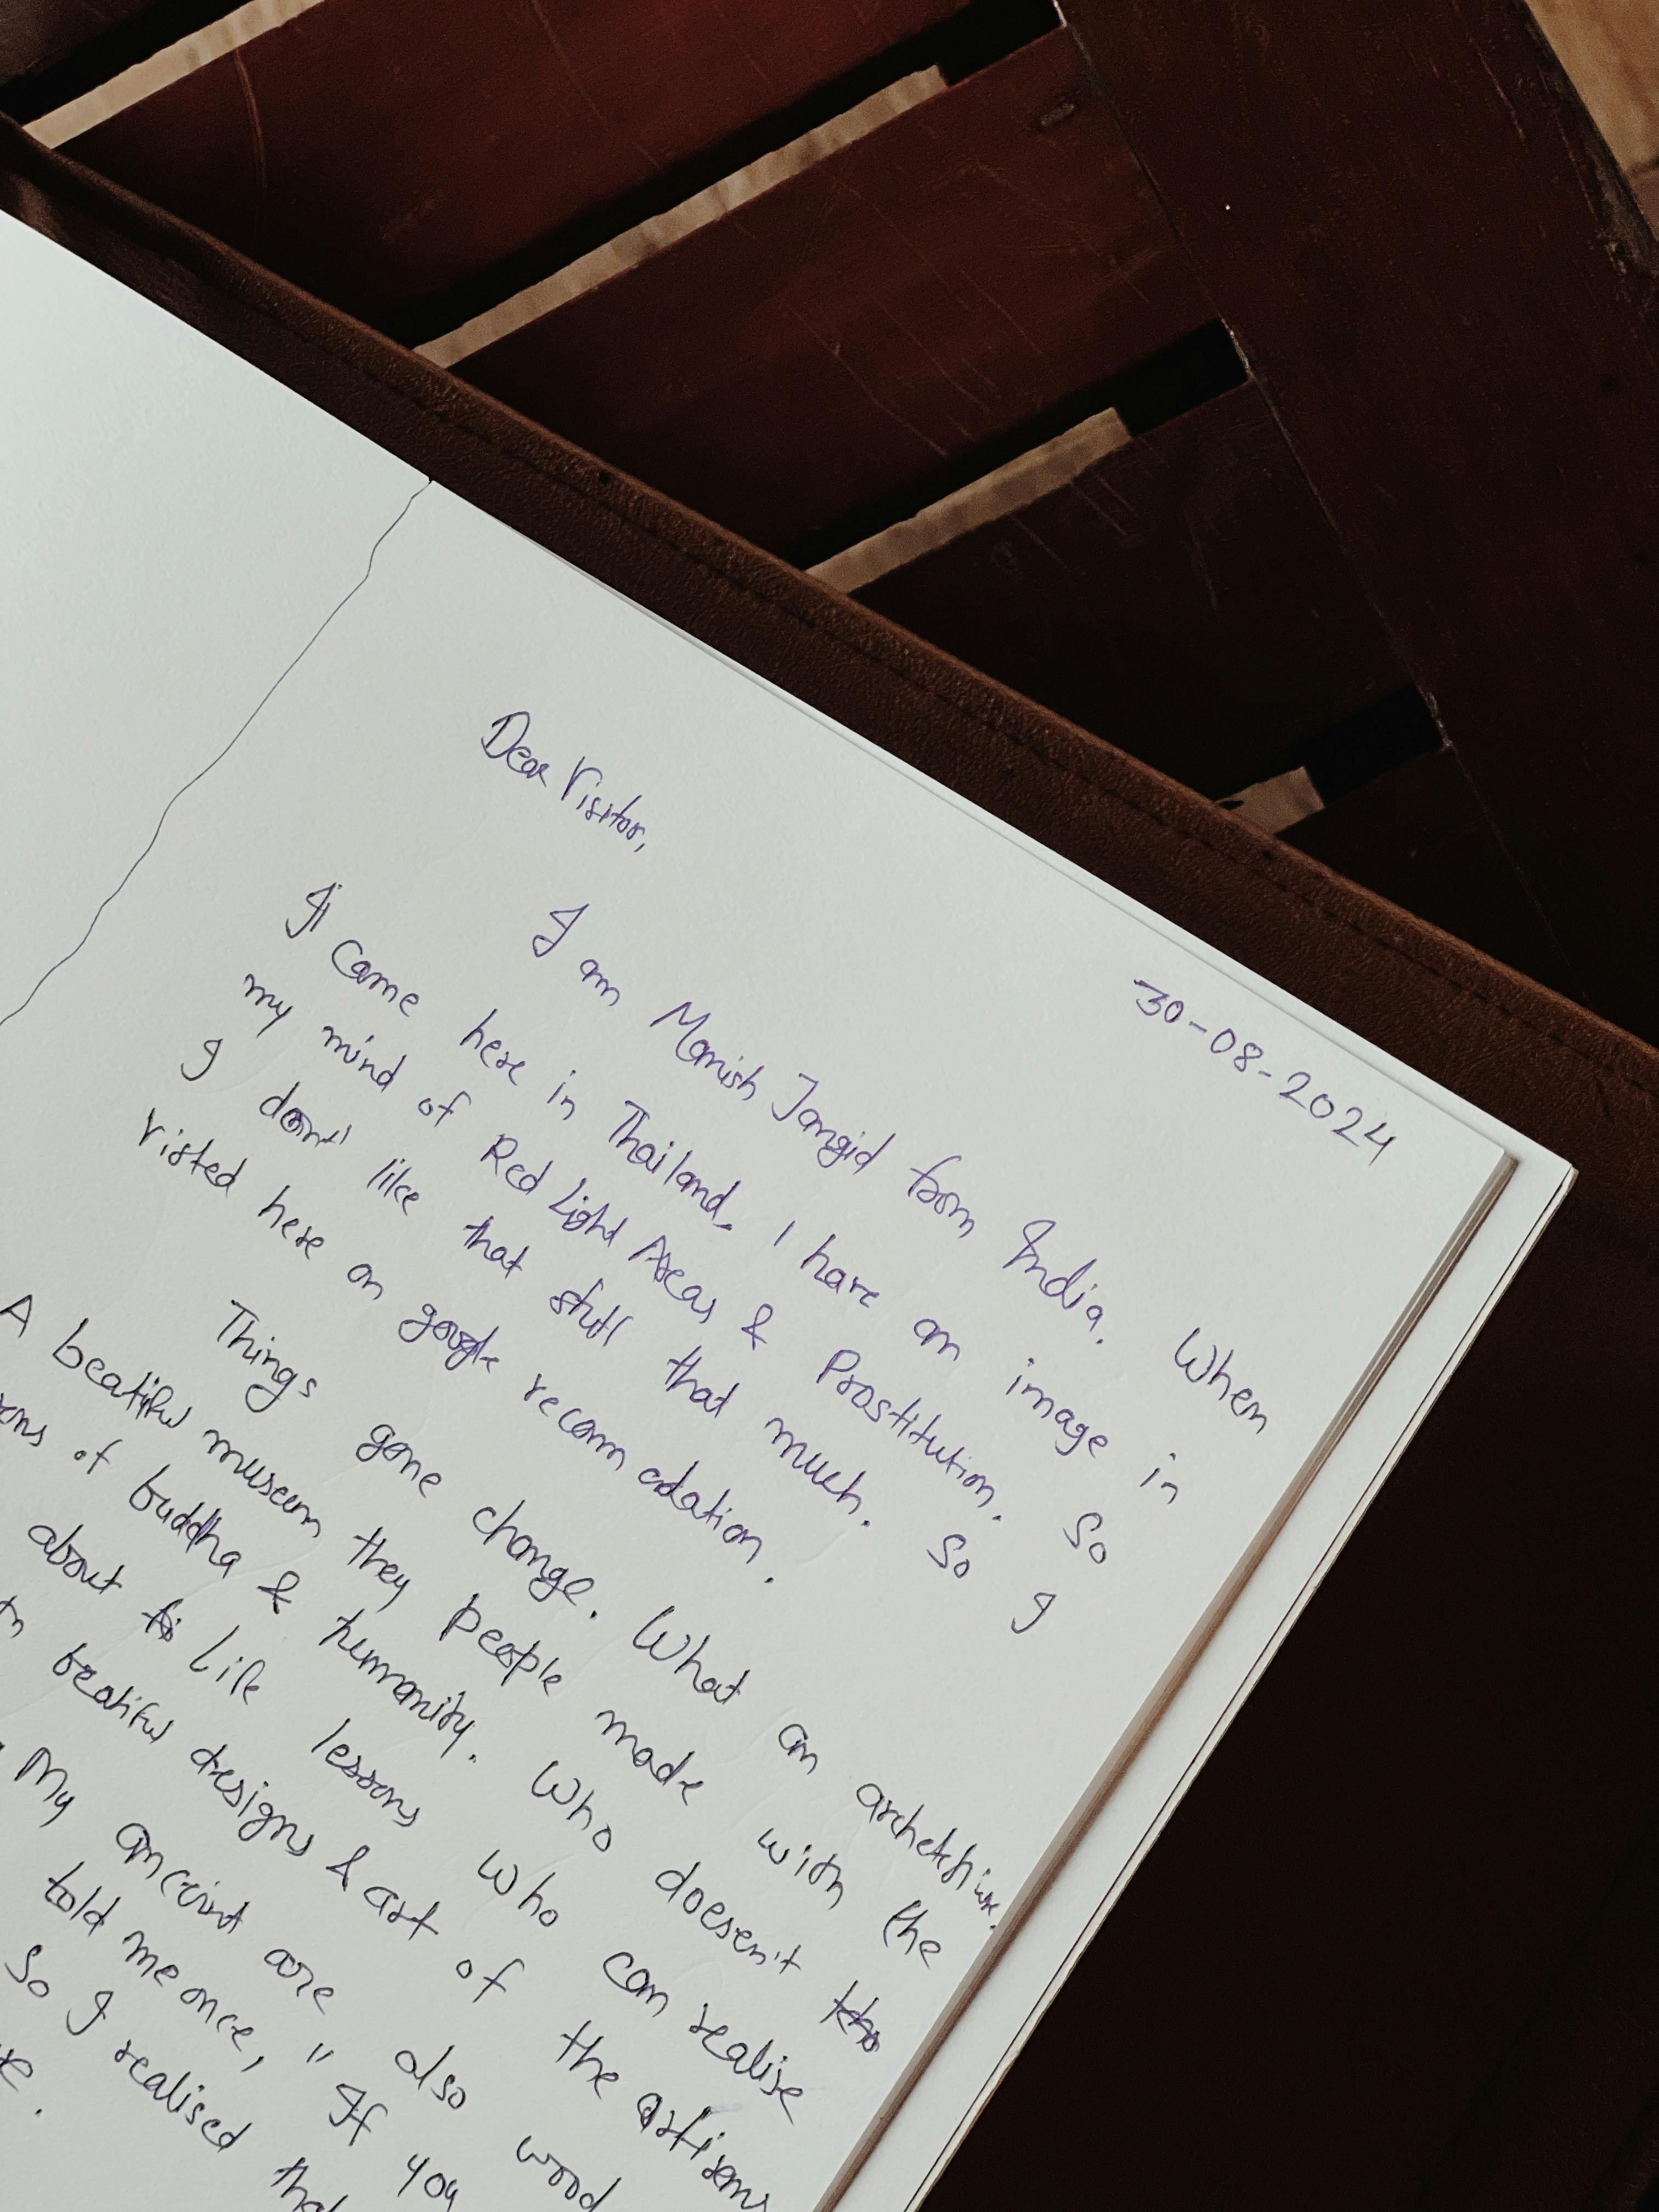 30-08-2024
Dear Visitor,
I am Manish Jangid from India. When
I came here in Thailand, I have an image in
my mind of Red Light Areas & Prostitution. So
I don't like that stuff that much. So I
visted here on google recommadation.
Things gone change. What an
A beatiful museum they people made with the
of buddha & humanity. Who doesen't
about Life lessons who can realise
beatiful designs & art of the
My are also wood
told me once, "If you
So I realised that